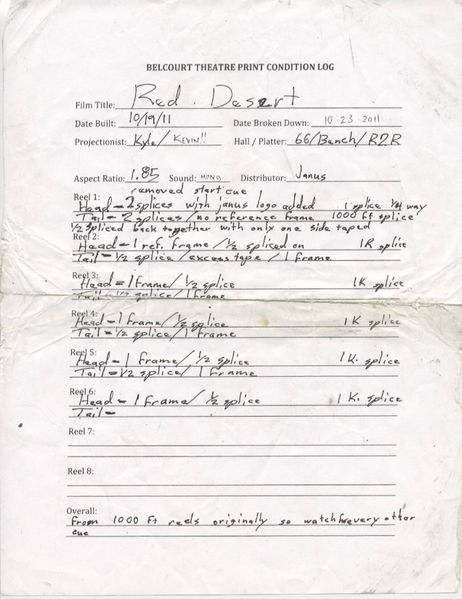 BELCOURT THEATRE PRINT CONDITION LOG
Film Title: Red Desert
Date Built: 10/19/11 Date Broken Down: 10-23-2011
Projectionist: Kyle/ KEVIN!! Hall / Platter: 66/Bench/
Aspect Ratio: 1.85 Sound: MONO Distributor: Janus
removed start cue
Reel 1:
Head = 2 splices with janus logo added 1 splice 1/4 way
Tail = 2 splices / no reference frame 1000 ft splice
1/2 spliced back together with only one side taped
Reel 2:
Head = 1 ref. frame / 1/2 spliced on splice
Tail = 1/2 splice / excess tape / 1 frame
Reel 3:
Head = 1 frame / 1/2 splice 1K splice
Tail = 1/2 splice / 1 frame
Reel 4:
Head - 1 frame / 1/2 splice 1K splice
Tail = 1/2 splice / 1 frame
Reel 5:
Head - 1 frame / 1/2 splice 1K. splice
Tail = 1/2 splice / 1 frame
Reel 6:
Head - 1 frame / 1/2 splice 1 K. splice
Tail =
Reel 7:
Reel 8:
Overall:
From 1000 ft reels originally so watch every other
cue